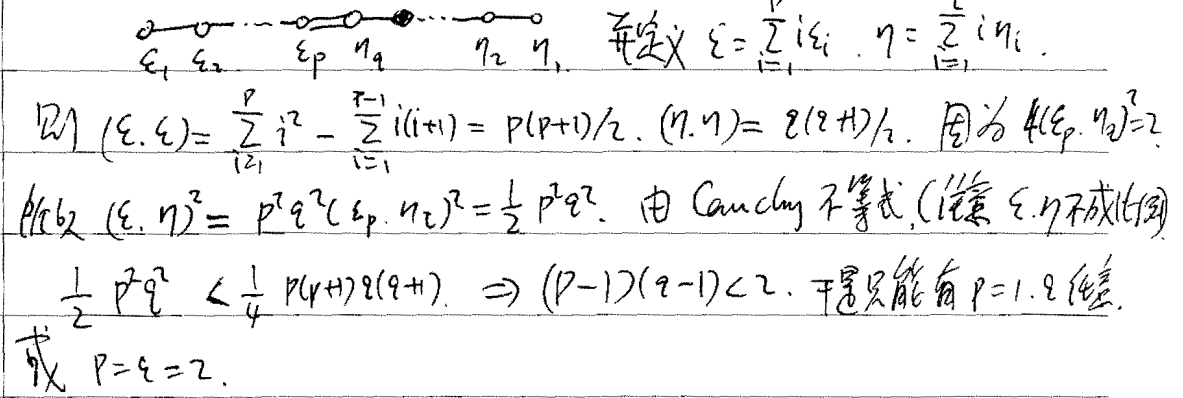 ε₁ ε₂ εₚ η_q η₂ η₁. 并定义 ε = \sum_{i=1}^{p} iε_i. η = \sum_{i=1}^{q} iη_i.
则 (ε.ε) = \sum_{i=1}^{p} i² − \sum_{i=1}^{p-1} i(i+1) = p(p+1)/2. (η.η) = q(q+1)/2. 因为 4(ε_p. η_q)² = 2.
所以 (ε.η)² = p²q²(ε_p. η_q)² = \frac{1}{2} p²q². 由 Cauchy 不等式, (注意 ε.η 不成比例)
\frac{1}{2} p²q² < \frac{1}{4} p(p+1)q(q+1). ⇒ (p−1)(q−1) < 2. 于是只能有 p=1. q 任意.
或 p=q=2.